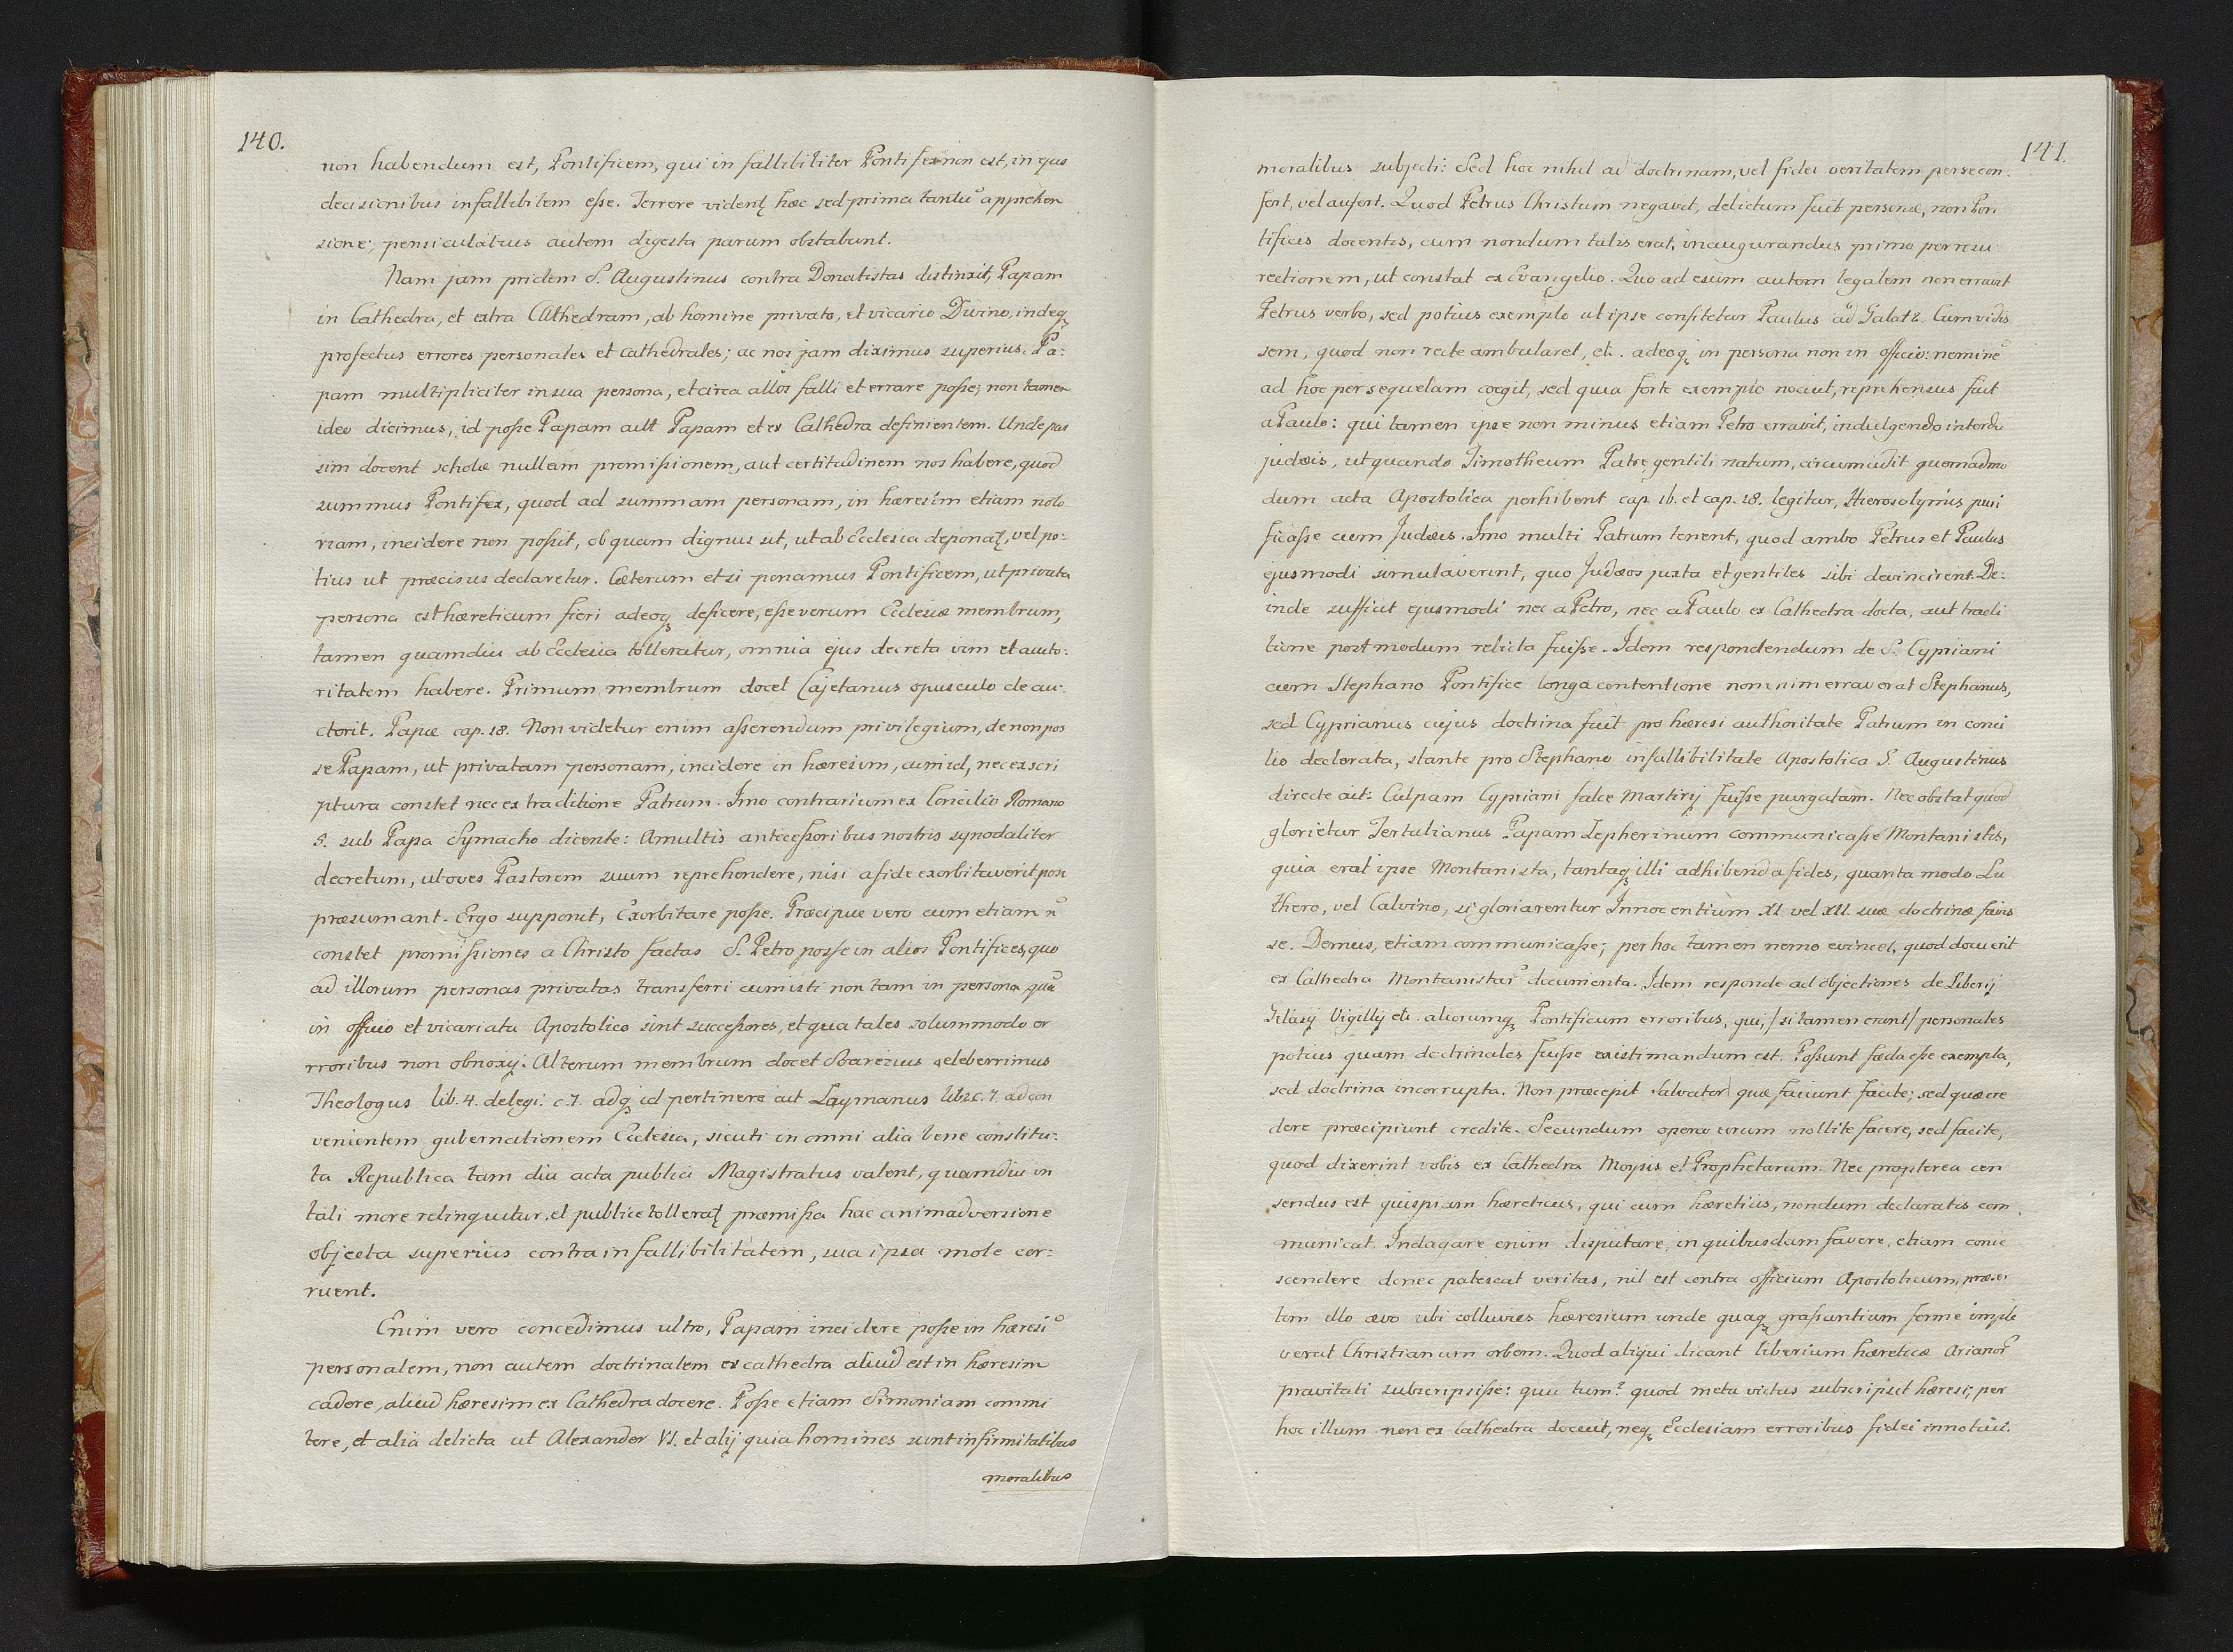 140.
non habendum est, Pontificem, qui in fallibiliter Pontifex non est, in ejus
decisionibus infallibilem esse. Terrere videntʒ hæc sed prima tantū apprehen
sione; pensiculatius autem digesta parum obstabunt.
Nam jam pridem S. Augustinus contra Donatistas distinxit, Papam
in Cathedra, et extra Cathedram, ab homine privato, et vicario Divino, indeqʒ
profectus errores personales et cathedrales; ac nos jam diximus superius. Pa:
pam multipliciter in sua persona, et circa allos falli et errare posse; non tamen
ideo dicimus, id posse Papam aut Papam et ex Cathedra definientem. Unde pas
sim docent scholæ nullam promissionem, aut certitudinem nos habere, quod
summus Pontifex, quod ad summam personam, in hæresim etiam noto
riam, incidere non possit, ob quam dignus sit, ut ab Ecclesia deponatʒ, vel po:
tius ut præcisus declaretur. Cæterum etsi ponamus Pontificem, ut privata
persona est hæreticum fieri adeoqʒ desicere, esse verum Ecclesiæ membrum,
tamen quamdiu ab Ecclesia tolleratur, omnia ejus decreta vim et auto:
ritatem habere. Primum membrum docet Cajetanus opusculo de au:
ctorit. Papæ cap. 18. Non videtur enim asserendum privilegium, de non pos
se Papam, ut privatam personam, incidere in hæresim, cum id, nec ex scri
ptura constet nec ex traditione Patrum. Imo contrarium ex Concilio Romano
5. sub Papa Symacho dicente: A multis antecessoribus nostris synodaliter
decretum, ut oves Pastorem suum reprehendere, nisi a fide exorbitaverit non
præsumant. Ergo supponit, Exorbitare posse. Præcipue vero cum etiam n̄
constet promissiones a Christo factas S. Petro posse in alios Pontifices, quo
ad illorum personas privatas transferri cum isti non tam in persona quā
in officio et vicariatu Apostolico sint successores, et qua tales solummodo er
rroribus non obnoxij. Alterum membrum docet Svarezius celeberrimus
Theologus lib. 4. de legi: c. 7. adqʒ id pertinere ait Laymanus lib. 2. c. 7. ad con
venientem gubernationem Ecclesiæ, sicuti in omni alia bene constitu:
ta Republica tam diu acta publici Magistratus valent, quamdiu in
tali more relinquitur, et publice tolleratʒ præmissa hac animadversione
objecta superius contra infallibilitatem, sua ipsa mole cor:
ruent.
Enim vero concedimus ultro, Papam incidere posse in hæresī
personalem, non autem doctrinalem ex cathedra aliud est in hæresim
cadere, aliud hæresim ex Cathedra docere. Posse etiam Simoniam commi
tere, et alia delicta ut Alexander VI. et alij quia homines sunt infirmitatibus
moralibus
141.
moralibus subjecti: Sed hoc nihil ad doctrinam, vel fidei veritatem per se con:
fert, vel aufert. Quod Petrus Christum negavit, delictum fuit personæ, non Pon
tificis docentis, cum nondum talis erat, inaugurandus primo per resu
rectionem, ut constat ex Evangelio. Quo ad esum autem legalem non erravit
Petrus verbo, sed potius exemplo ut ipse confitetur Paulus ad Galat 2. Cum vidis
sem, quod non recte ambularet, etc. adeoqʒ in persona non in officio: neminē
ad hoc per sequelam coegit, sed quia forte exemplo nocuit, reprehensus fuit
a Paulo: qui tamen ipse non minus etiam Petro erravit, indulgendo interdū
judæis, ut quando Timotheum Patre gentili natum, circumcidit quemadmo
dum acta Apostolica perhibent cap. 16. et cap. 18. legitur, Hierosolymis puri
ficasse cum Judæis. Imo multi Patrum tenent, quod ambo Petrus et Paulus
ejusmodi simulaverint, quo Judæos juxta et gentiles sibi devincirent. De:
inde sufficit ejusmodi nec a Petro, nec a Paulo ex Cathedra docta, aut tradi
tione postmodum relicta fuisse. Idem respondendum de S. Cypriani
cum Stephano Pontifice longa contentione non enim erraverat Stephanus,
sed Cyprianus cujus doctrina fuit pro hæresi authoritate Patrum in conci
lio declarata, stante pro Stephano infallibilitate Apostolica S. Augustinus
directe ait: Culpam Cypriani falce Martirij fuisse purgatam. Nec obstat quod
glorietur Tertulianus Papam Zepherinum communicasse Montanistis,
quia erat ipse Montanista, tantaqʒ illi adhibenda fides, quanta modo Lu
thero, vel Calvino, si gloriarentur Innocentium XI. vel XII. suæ doctrinæ favis
se. Demus, etiam communicasse; per hoc tamen nemo evincet, quod docuerit
ex Cathedra Montanistarū documenta. Idem responde ad objectiones de Liberij
Gelasij Vigilij etc. aliorumqʒ Pontificum erroribus, qui, /si tamen erant/ personales
potius quam doctrinales fuisse existimandum est. Possunt fœda esse exempla,
sed doctrina incorrupta. Non præcepit Salvator quæ faciunt facite; sed quæ cre
dere præcipiunt credite. Secundum opera eorum nollite facere, sed facite,
quod dixerint vobis ex Cathedra Moysis et Prophetarum. Nec propterea cen
sendus est quispiam hæreticus, qui cum hæreticis, nondum declaratis com
municat. Indagare enim disputare, in quibusdam favere, etiam conde
scendere donec patescat veritas, nil est contra officium Apostolicum, præser
tim illo ævo ubi colluvies hæresium unde quaqʒ grassantium ferme imple
verat Christianum orbem. Quod aliqui dicant Liberium hæreticæ Arianor̄
pravitati subscripsisse: quid tum? quod metu victus subscripsit hæresi; per
hoc illum non ex Cathedra docuit, neqʒ Ecclesiam erroribus fidei innotuit.